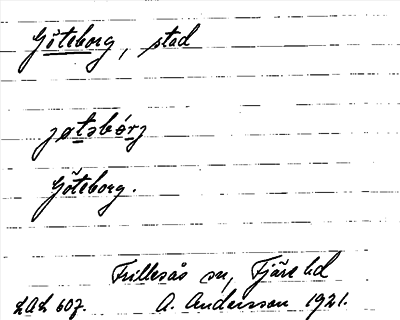 Göteborg, stad
jatəbórj
Göteborg.
Frillesås sn, Fjäre hd
LAL 607. A. Andersson 1921.